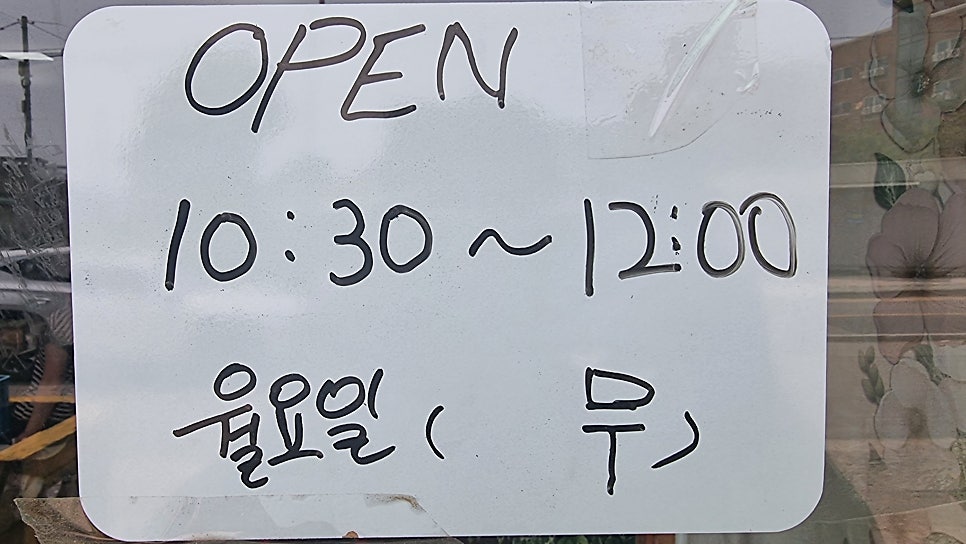 OPEN
10:30~12:00
월요일( 무)